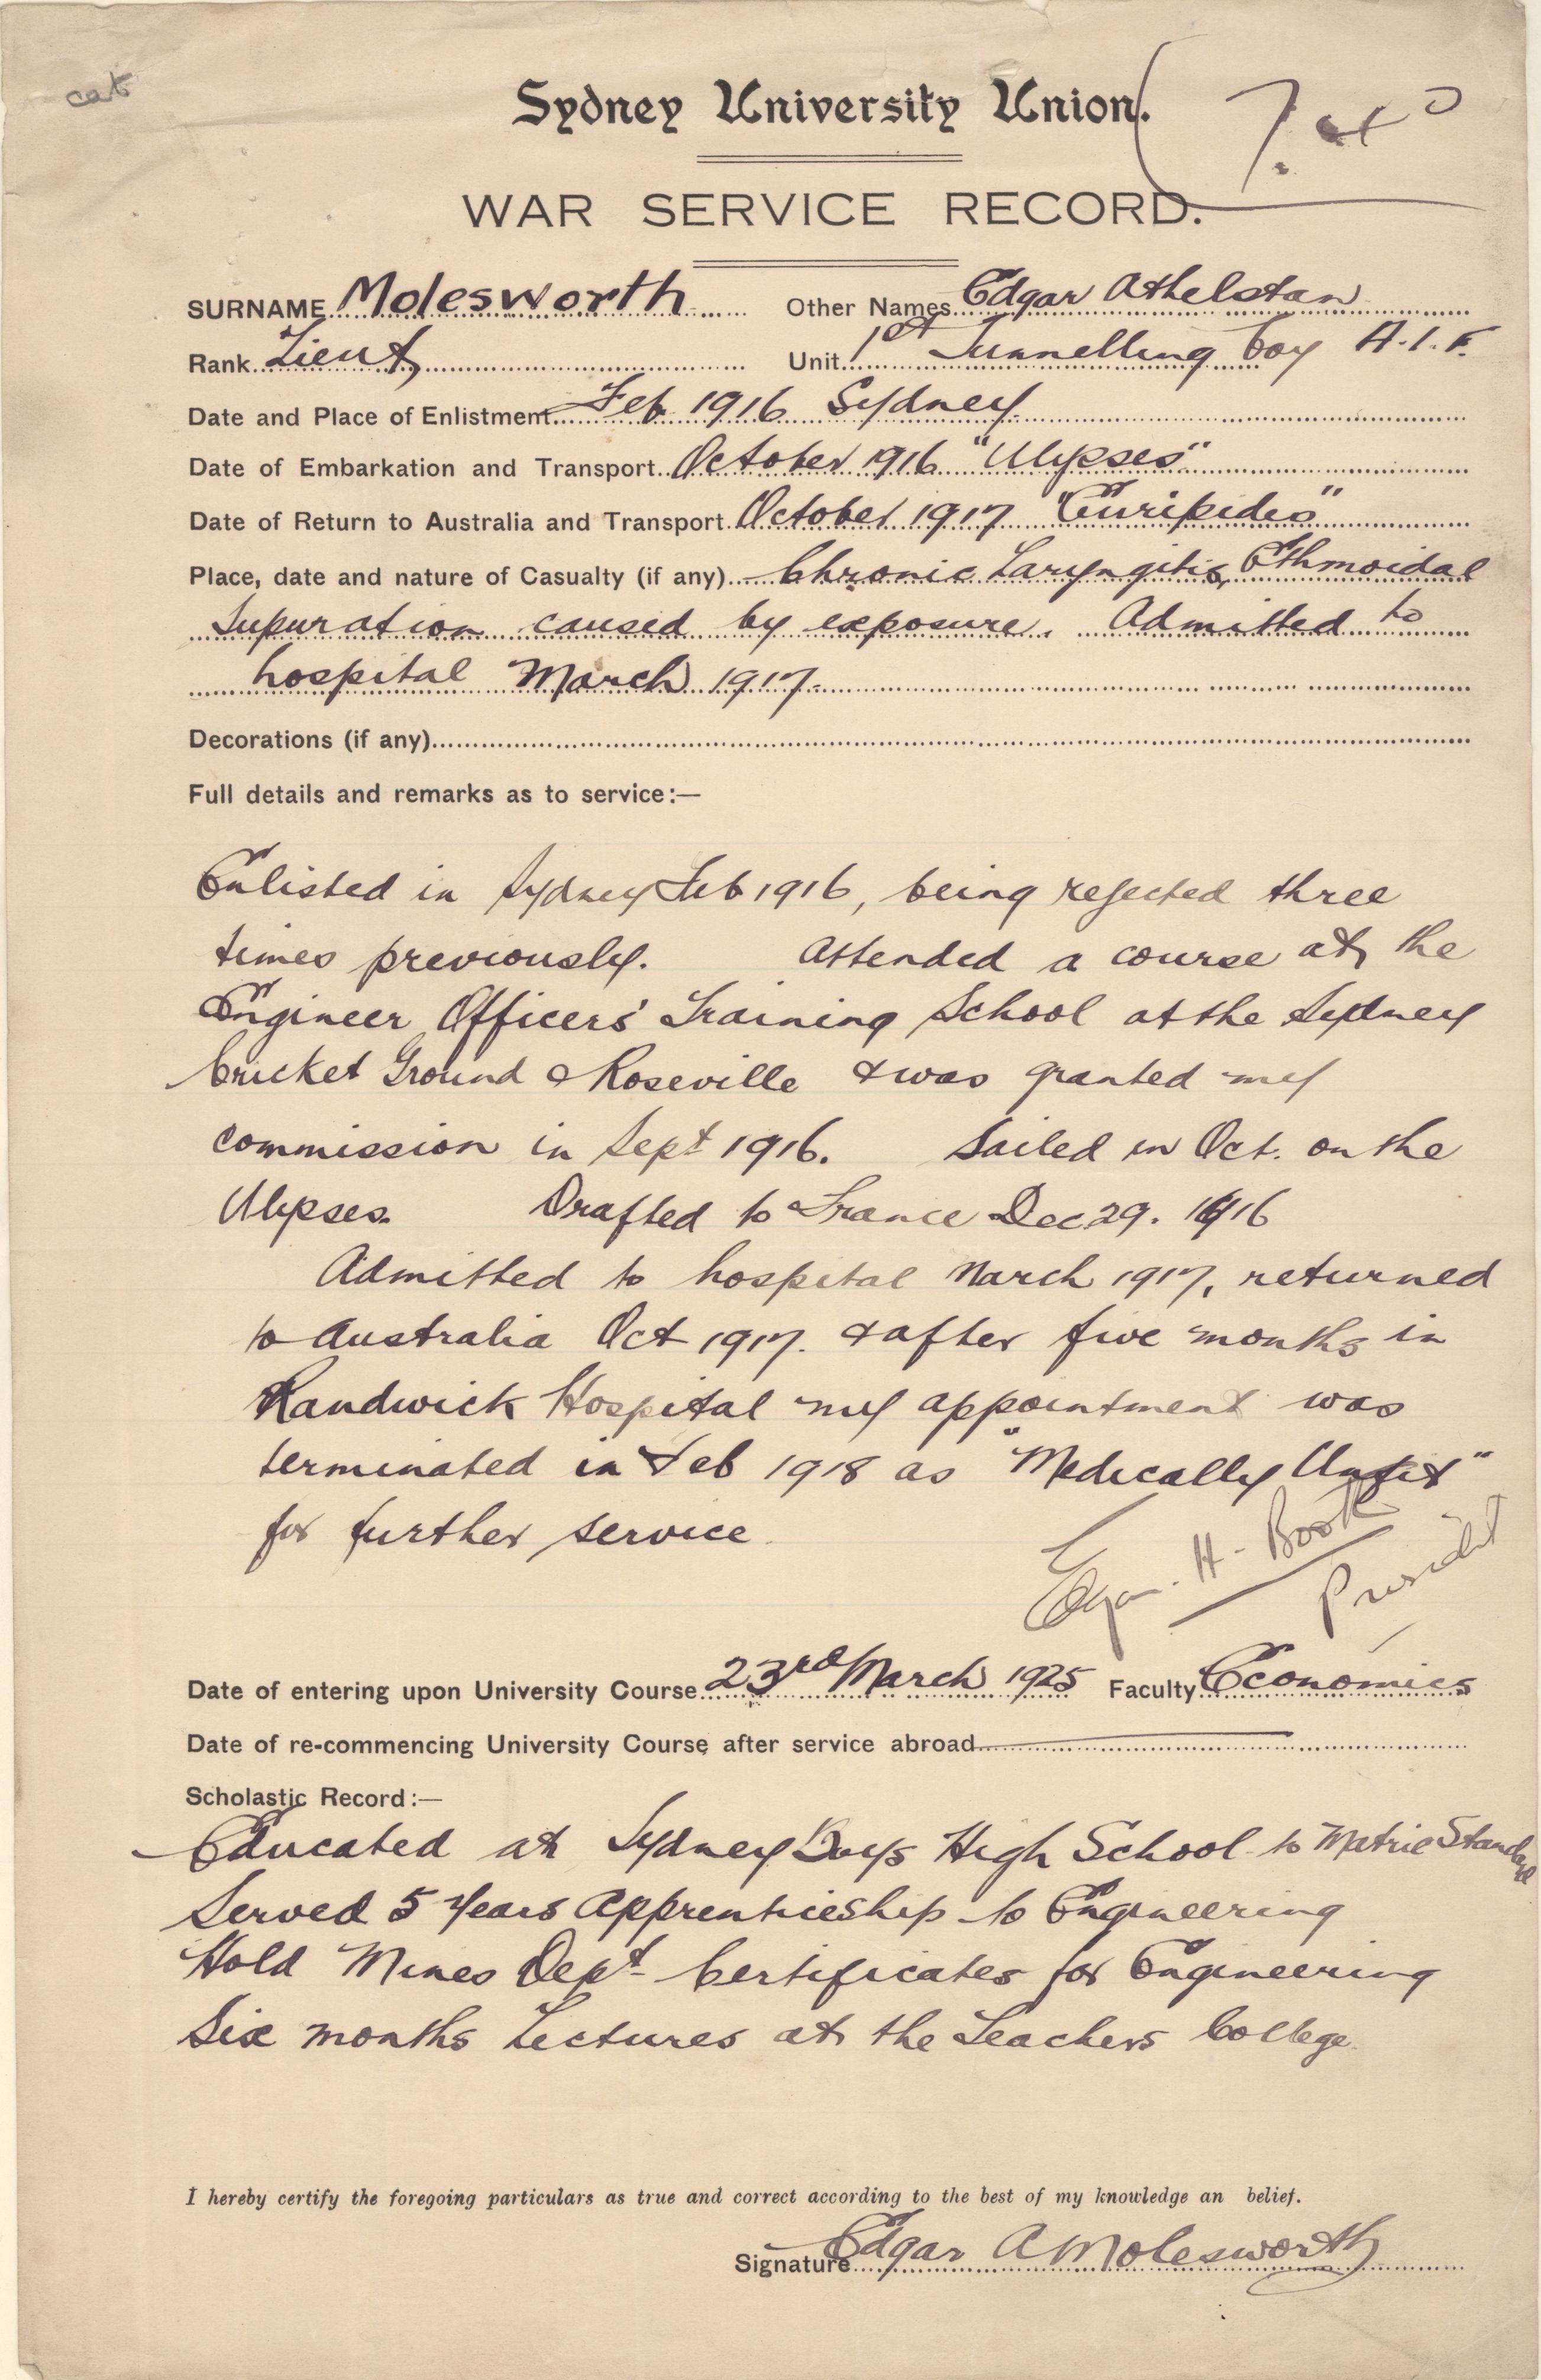 cat
Sydney University Union.
WAR SERVICE RECORD.
SURNAME Molesworth Other Names Edgar Athelstan
Rank Lieut Unit 1st Tunnelling Coy A.I.F.
Date and Place of Enlistment Feb 1916 Sydney
Date of Embarkation and Transport October 1916 "Ulysses"
Date of Return to Australia and Transport October 1917 "Euripides"
Place, date and nature of Casualty (if any) Chronic Laryngitis, Ethmoidal
Supuration caused by exposure. Admitted to
hospital March 1917.
Decorations (if any)
Full details and remarks as to service:—
Enlisted in Sydney Feb 1916, being rejected three
times previously. Attended a course at the
Engineer Officers' Training School at the Sydney
Cricket Ground & Roseville & was granted my
commission in Sept 1916. Sailed in Oct. on the
Ulysses. Drafted to France Dec 29. 1916
Admitted to hospital March 1917, returned
to Australia Oct 1917. & after five months in
Randwick Hospital my appointment was
terminated in Feb 1918 as "Medically Unfit"
for further service
Edgar. H. Booth
President
Date of entering upon University Course 23rd March 1925 Faculty Economics
Date of re-commencing University Course after service abroad
Scholastic Record:—
Educated at Sydney Boys High School to Matric Standard
Served 5 Years Apprenticeship to Engineering
Hold Mines Dept Certificates for Engineering
Six months Lectures at the Teachers College.
I hereby certify the foregoing particulars as true and correct according to the best of my knowledge an belief.
Signature Edgar A Molesworth